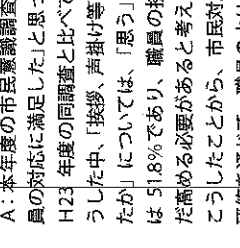 A：本年度の市民意識調査
員の対応に満足した」と思っ
H23 年度の同調査と比べて
うした中、「挨拶、声掛け等
たか」については、「思う」
は 51.8%であり、職員の接
だ高める必要があると考え
こうしたことから、市民対